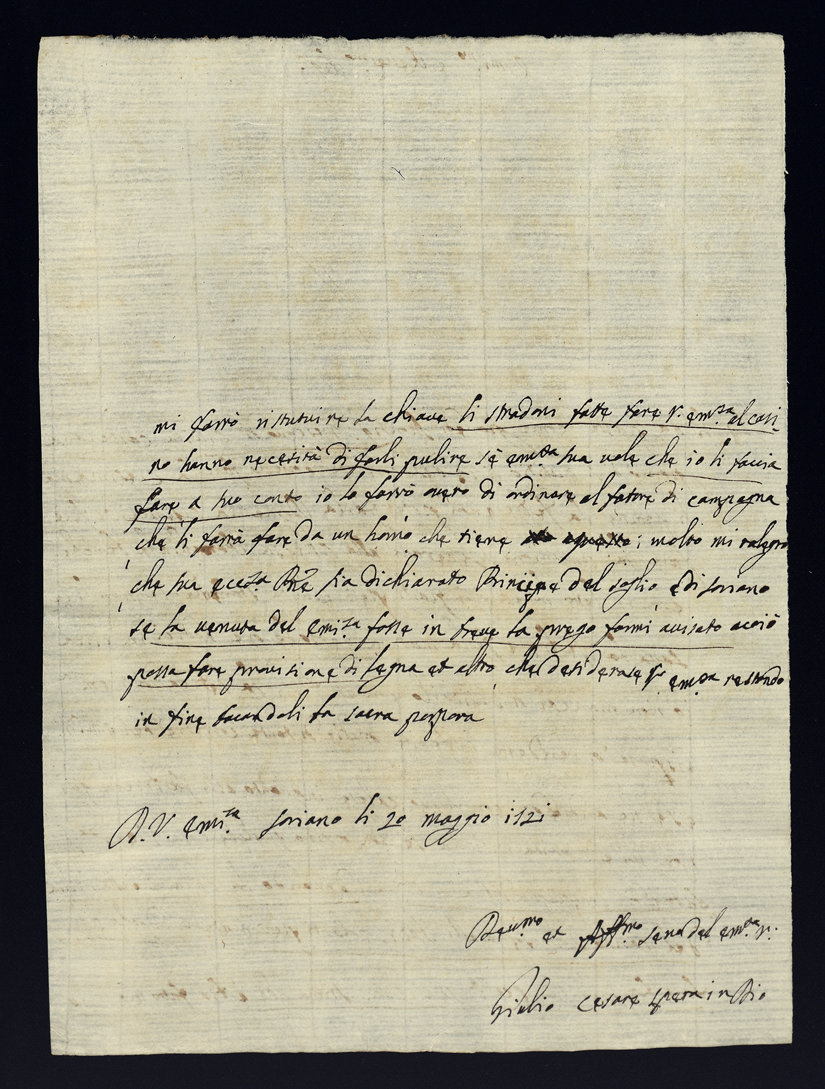 mi farrò ristutuire la chiave li stradoni fatte fare V. em.za al casi
no hanno necesità di farli pulire se em.za sua vole che io li faccia
fare a suo conto io lo farrò overo di ordinare al fatore di campagna
che li farrà fare da un homo che tiene ; molto mi ralegro
che sua ecc.za sia dichiarato Principe del soglio e di soriano
se la venuta del emi.za fosse in breve la prego farmi avisato acciò
possa fare provisione di legna et altro che desiderase V. em.za restando
in fine baciandoli la sacra porpora
D. V. emi.za soriano li 20 maggio 1721
Dev.mo et Aff.mo ser del em.za V.
Giulio Cesare spera in Dio